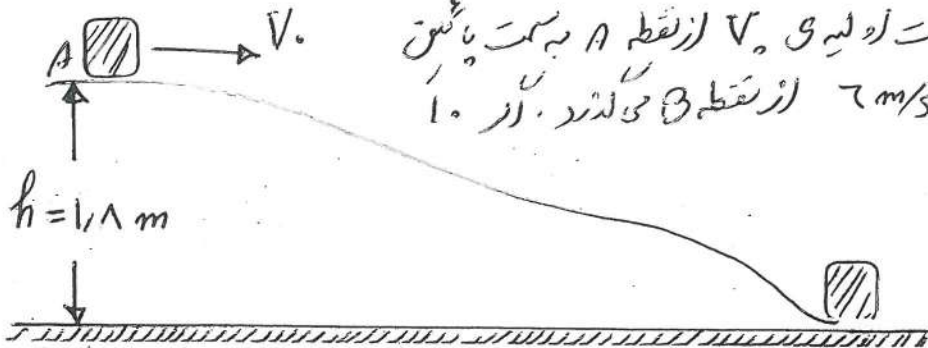 ت اولیه ی V۰ از نقطه A به سمت پائین
۶ m/s از نقطه B می گذرد . اگر ۱۰
A
V۰
h = ۱,۸ m